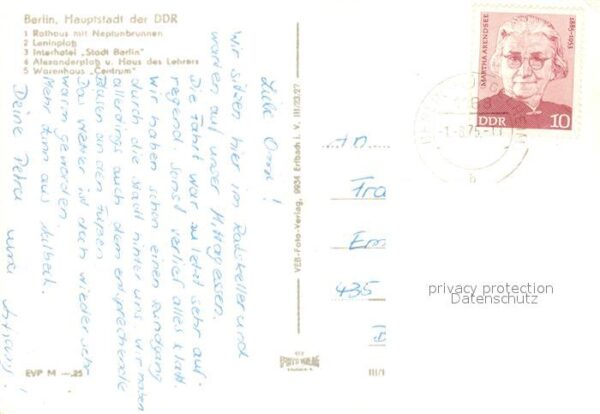 Berlin, Hauptstadt der DDR
1 Rathaus mit Neptunbrunnen
2 Leninplatz
3 Interhotel „Stadt Berlin"
4 Alexanderplatz u. Haus des Lehrers
5 Warenhaus „Centrum"
Liebe Oma!
Wir sitzen hier im Ratskeller und
warten auf unser Mittagessen.
Die Fahrt war zuletzt sehr auf-
regend. Sonst verlief alles glatt.
Wir haben schon einen Rundgang
durch die Stadt hinter uns. Wir haben
allerdings auch dem entsprechende
Blasen an den Füßen.
Das Wetter ist doch wieder sehr
warm geworden.
Mehr dann aus
Deine Petra und
EVP M —.25
VEB-Foto-Verlag, 9934 Erlbach i. V. III/23/27
MARTHA ARENDSEE
1885-1953
DDR
10
-1.-8.75.-
b
Fra
435
III/1
privacy protection
Datenschutz